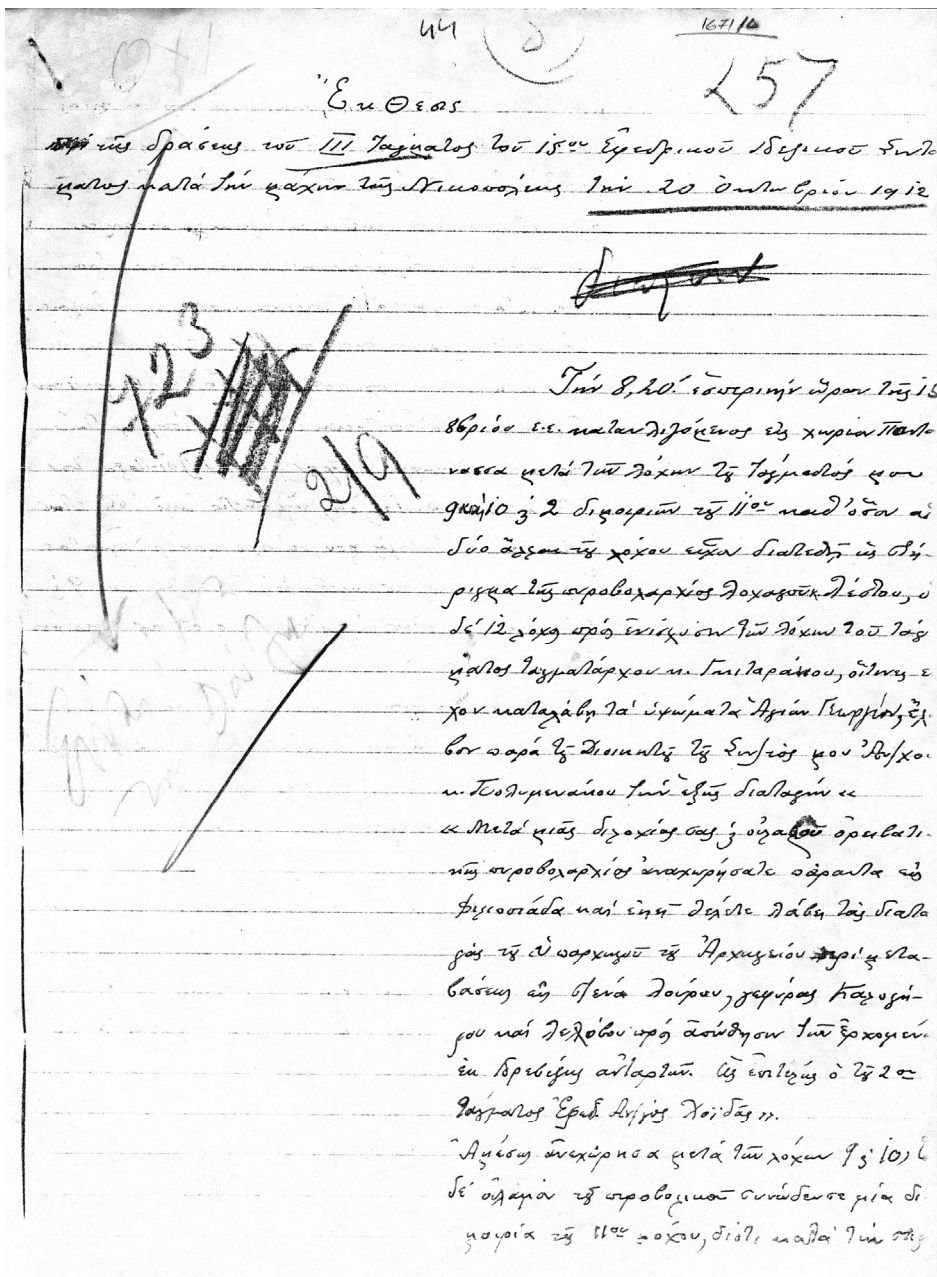 44
1671/Δ
257
Ἔκθεσις
τῆς δράσεως τοῦ III Τάγματος τοῦ 15ου Ἐφεδρικοῦ Πεζικοῦ Συντά
γματος κατά τήν μάχην τῆς Νικοπόλεως τήν 20 Ὀκτωβρίου 1912
Τήν 8,20΄ ἑσπερινήν ὥραν τῆς 15
8βρίου ἐ.ἐ. καταυλιζόμενος εἰς χωρίον Παντά
νασσα μετά τῶν λόχων τοῦ Τάγματός μου
9 καί 10 2 διμοιριῶν τοῦ 11ου καθ' ὅσον αἱ
δύο ἄλλαι τοῦ λόχου εἶχον διατεθῆ ὡς στή-
ριγμα τῆς πυροβολαρχίας λοχαγοῦ κ. ὁ
δέ 12 λόχος πρός ἐνίσχυσιν τῶν λόχων τοῦ τάγ
ματος ταγματάρχου κ. οἵτινες εἶ
χον καταλάβη τά ὑψώματα Ἁγίου Γεωργίου, ἔλα
βον παρά τοῦ Διοικητοῦ τοῦ Συν/τός μου Ἀντ/χου
κ. Πολυμενάκου τήν ἑξῆς διαταγήν «
« Μετά μιᾶς διλοχίας σας οὐλαμοῦ ὀρειβατι-
κῆς πυροβολαρχίας ἀναχωρήσατε πάραυτα εἰς
Φιλιππιάδα καί ἐκεῖ θέλετε λάβη τάς διατα
γάς τοῦ Ὑπαρχηγοῦ τοῦ Ἀρχηγείου περί μετα-
βάσεως εἰς στενά Λούρου, γεφύρας Καλογή-
ρου καί Λελόβου πρός ἀπώθησιν τῶν ἐρχομένων
ἐκ Πρεβέζης ἀνταρτῶν. Ὡς ἐπιτελής ὁ τοῦ 2ου
τάγματος Ἐφεδ. Ἀν/γός Χοϊδᾶς ».
Ἀμέσως ἀνεχώρησα μετά τῶν λόχων 9 10,
δέ οὐλαμόν τοῦ πυροβολικοῦ συνώδευσε μία δι
μοιρία τοῦ 11ου λόχου, διότι κατά τήν
7
2
3
2/9